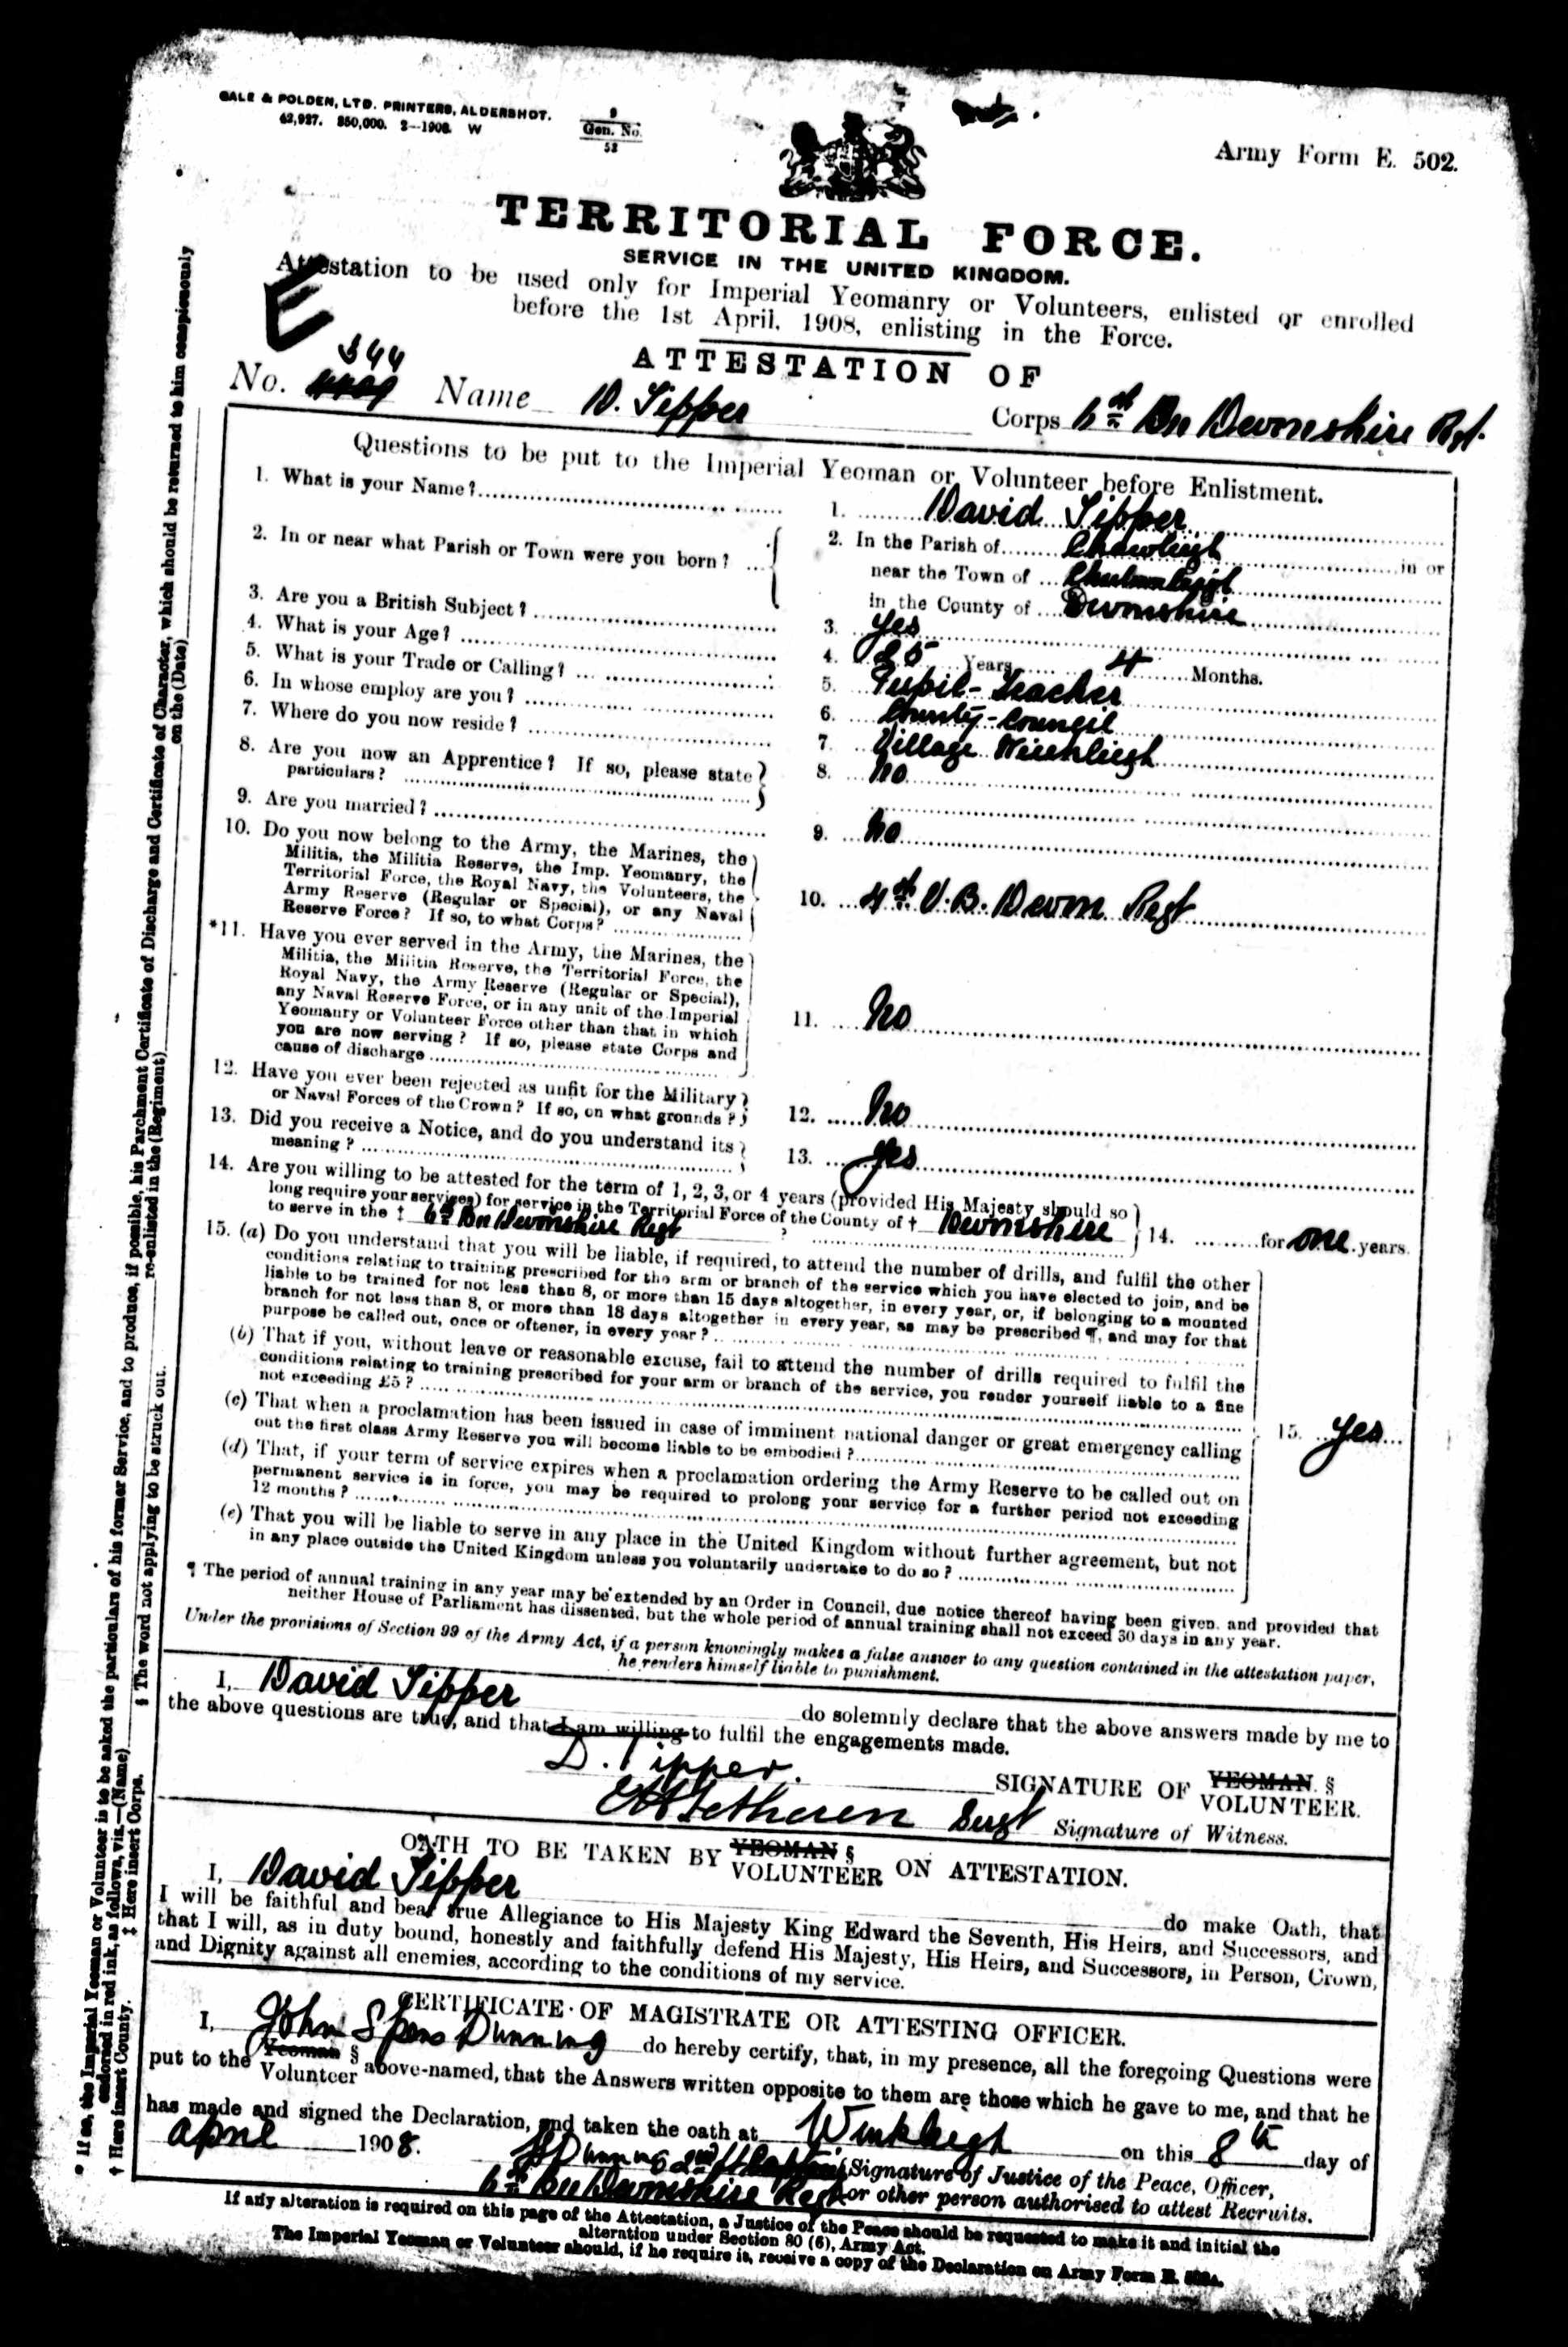 GALE & POLDEN, LTD. PRINTERS, ALDERSHOT.
62,927. 350,000. 2—1908. W
9
Gen. No.
53
Army Form E. 502.
TERRITORIAL FORCE.
SERVICE IN THE UNITED KINGDOM.
Attestation to be used only for Imperial Yeomanry or Volunteers, enlisted or enrolled
before the 1st April, 1908, enlisting in the Force.
E
ATTESTATION OF
344
No. Name D. Tipper Corps 6th Bn Devonshire Rgt.
Questions to be put to the Imperial Yeoman or Volunteer before Enlistment.
1. What is your Name? 1. David Tipper
2. In or near what Parish or Town were you born? 2. In the Parish of Chawleigh in or
near the Town of Chulmleigh
in the County of Devonshire
3. Are you a British Subject? 3. Yes
4. What is your Age? 4. 25 Years 4 Months.
5. What is your Trade or Calling? 5. Pupil-Teacher
6. In whose employ are you? 6. County-Council
7. Where do you now reside? 7. Village Winkleigh
8. Are you now an Apprentice? If so, please state
particulars? 8. No
9. Are you married? 9. No
10. Do you now belong to the Army, the Marines, the
Militia, the Militia Reserve, the Imp. Yeomanry, the
Territorial Force, the Royal Navy, the Volunteers, the
Army Reserve (Regular or Special), or any Naval
Reserve Force? If so, to what Corps? 10. 4th V.B. Devon Regt
*11. Have you ever served in the Army, the Marines, the
Militia, the Militia Reserve, the Territorial Force, the
Royal Navy, the Army Reserve (Regular or Special),
any Naval Reserve Force, or in any unit of the Imperial
Yeomanry or Volunteer Force other than that in which
you are now serving? If so, please state Corps and
cause of discharge 11. No
12. Have you ever been rejected as unfit for the Military
or Naval Forces of the Crown? If so, on what grounds? 12. No
13. Did you receive a Notice, and do you understand its
meaning? 13. Yes
14. Are you willing to be attested for the term of 1, 2, 3, or 4 years (provided His Majesty should so
long require your services) for service in the Territorial Force of the County of † Devonshire
to serve in the ‡ 6th Bn Devonshire Regt 14. for one years.
15. (a) Do you understand that you will be liable, if required, to attend the number of drills, and fulfil the other
conditions relating to training prescribed for the arm or branch of the service which you have elected to join, and be
liable to be trained for not less than 8, or more than 15 days altogether, in every year, or, if belonging to a mounted
branch for not less than 8, or more than 18 days altogether in every year, as may be prescribed ¶, and may for that
purpose be called out, once or oftener, in every year?
(b) That if you, without leave or reasonable excuse, fail to attend the number of drills required to fulfil the
conditions relating to training prescribed for your arm or branch of the service, you render yourself liable to a fine
not exceeding £5?
(c) That when a proclamation has been issued in case of imminent national danger or great emergency calling
out the first class Army Reserve you will become liable to be embodied?
15. Yes
(d) That, if your term of service expires when a proclamation ordering the Army Reserve to be called out on
permanent service is in force, you may be required to prolong your service for a further period not exceeding
12 months?
(e) That you will be liable to serve in any place in the United Kingdom without further agreement, but not
in any place outside the United Kingdom unless you voluntarily undertake to do so?
¶ The period of annual training in any year may be extended by an Order in Council, due notice thereof having been given, and provided that
neither House of Parliament has dissented, but the whole period of annual training shall not exceed 30 days in any year.
Under the provisions of Section 99 of the Army Act, if a person knowingly makes a false answer to any question contained in the attestation paper,
he renders himself liable to punishment.
I, David Tipper do solemnly declare that the above answers made by me to
the above questions are true, and that I am willing to fulfil the engagements made.
D. Tipper. SIGNATURE OF YEOMAN. §
VOLUNTEER.
Sergt Signature of Witness.
OATH TO BE TAKEN BY YEOMAN §
VOLUNTEER ON ATTESTATION.
I, David Tipper do make Oath, that
I will be faithful and bear true Allegiance to His Majesty King Edward the Seventh, His Heirs, and Successors, and
that I will, as in duty bound, honestly and faithfully defend His Majesty, His Heirs, and Successors, in Person, Crown,
and Dignity against all enemies, according to the conditions of my service.
CERTIFICATE OF MAGISTRATE OR ATTESTING OFFICER.
I, John Spens Dunning do hereby certify, that, in my presence, all the foregoing Questions were
put to the Yeoman §
Volunteer above-named, that the Answers written opposite to them are those which he gave to me, and that he
has made and signed the Declaration, and taken the oath at Winkleigh on this 8th day of
April 1908.
JS Dunning 2nd Lt Signature of Justice of the Peace, Officer,
6th Bn Devonshire Regt or other person authorised to attest Recruits.
If any alteration is required on this page of the Attestation, a Justice of the Peace should be requested to make it and initial the
alteration under Section 80 (6), Army Act.
The Imperial Yeoman or Volunteer should, if he require it, receive a copy of the Declaration on Army Form E. 502A.
* If so, the Imperial Yeoman or Volunteer is to be asked the particulars of his former Service, and to produce, if possible, his Parchment Certificate of Discharge and Certificate of Character, which should be returned to him conspicuously
endorsed in red ink, as follows, viz.—(Name) re-enlisted in the (Regiment) on the (Date)
† Here insert County. ‡ Here insert Corps. § The word not applying to be struck out.